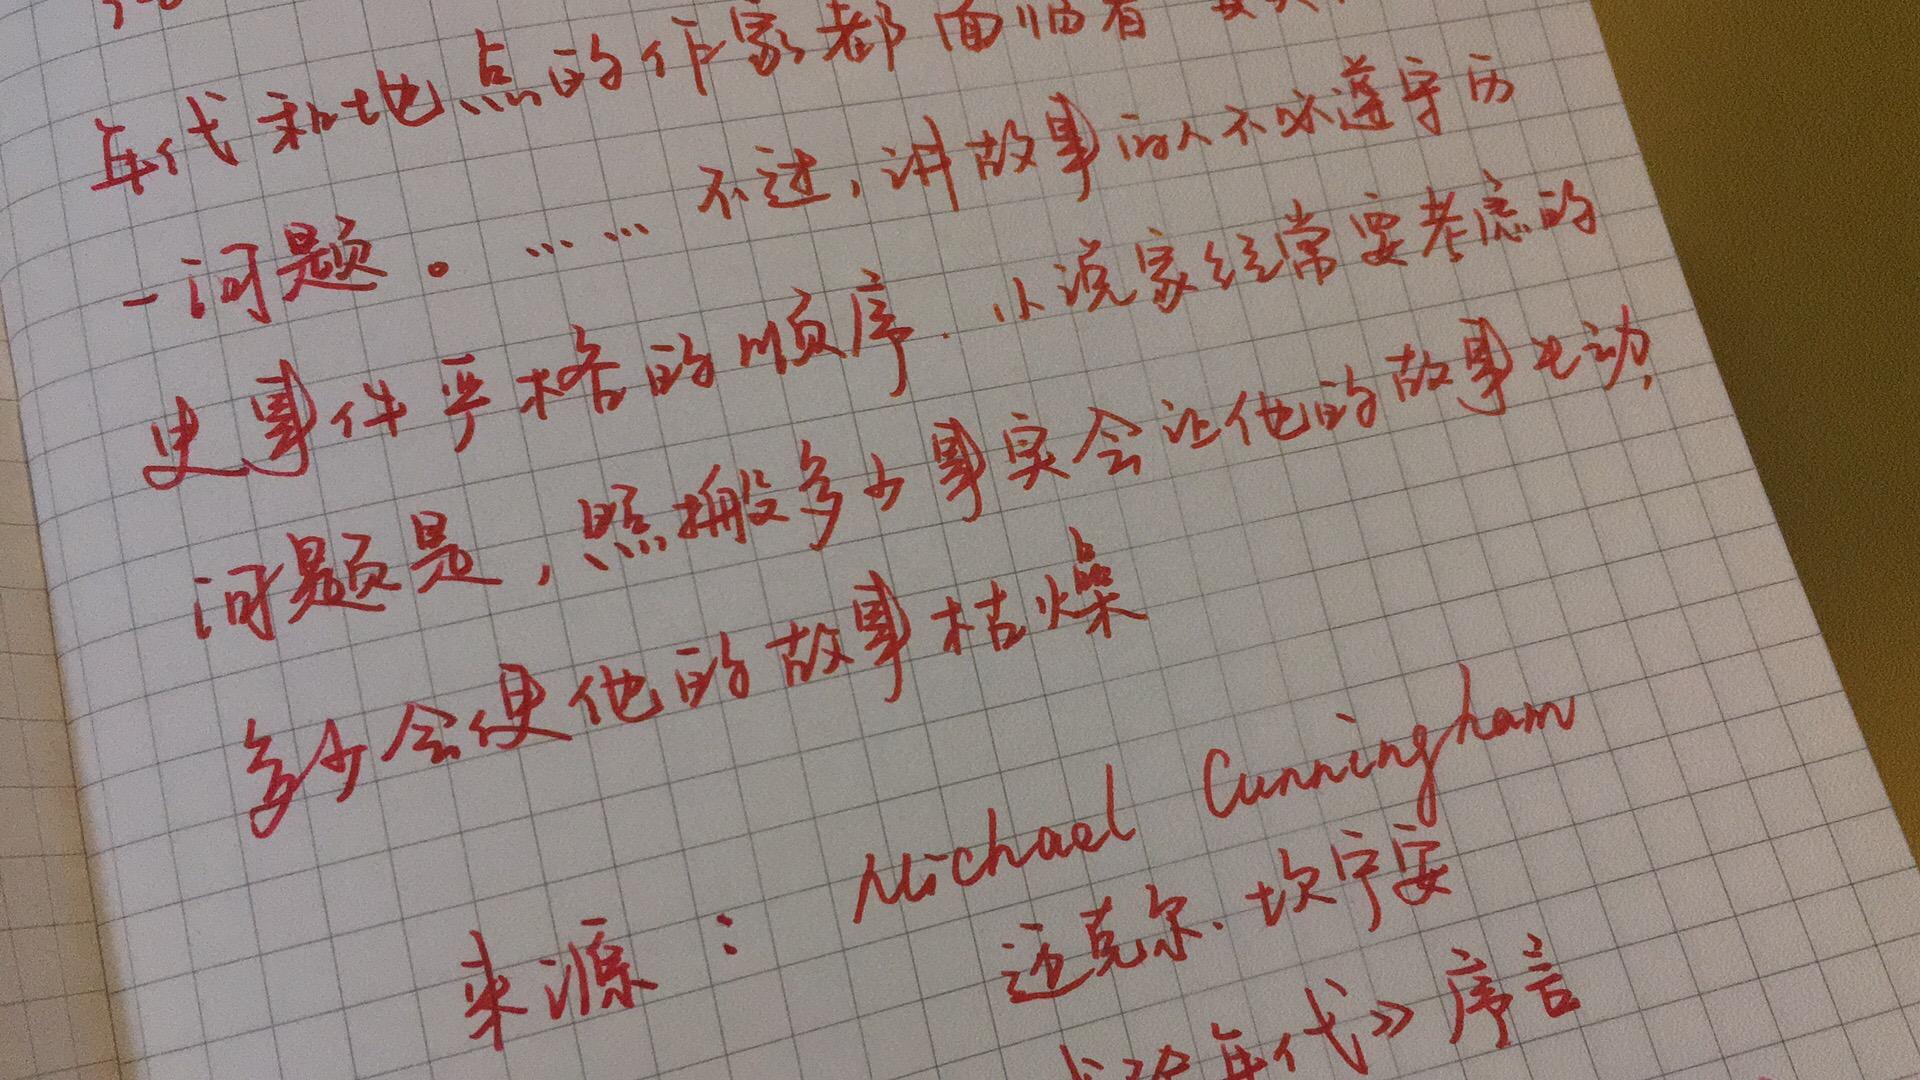 年代和地点的作家都面临着
一问题。…… 不过,讲故事的人不必遵守历
史事件严格的顺序.小说家经常要考虑的
问题是,照搬多少事实会让他的故事生动,
多少会使他的故事枯燥
来源: Michael Cunningham
迈克尔.坎宁安
年代》序言